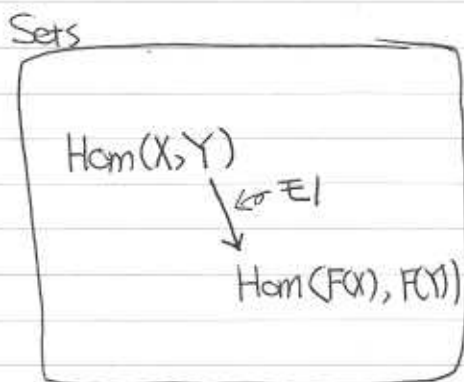 Sets
Hom(X,Y)
∃1
Hom(F(X), F(Y))